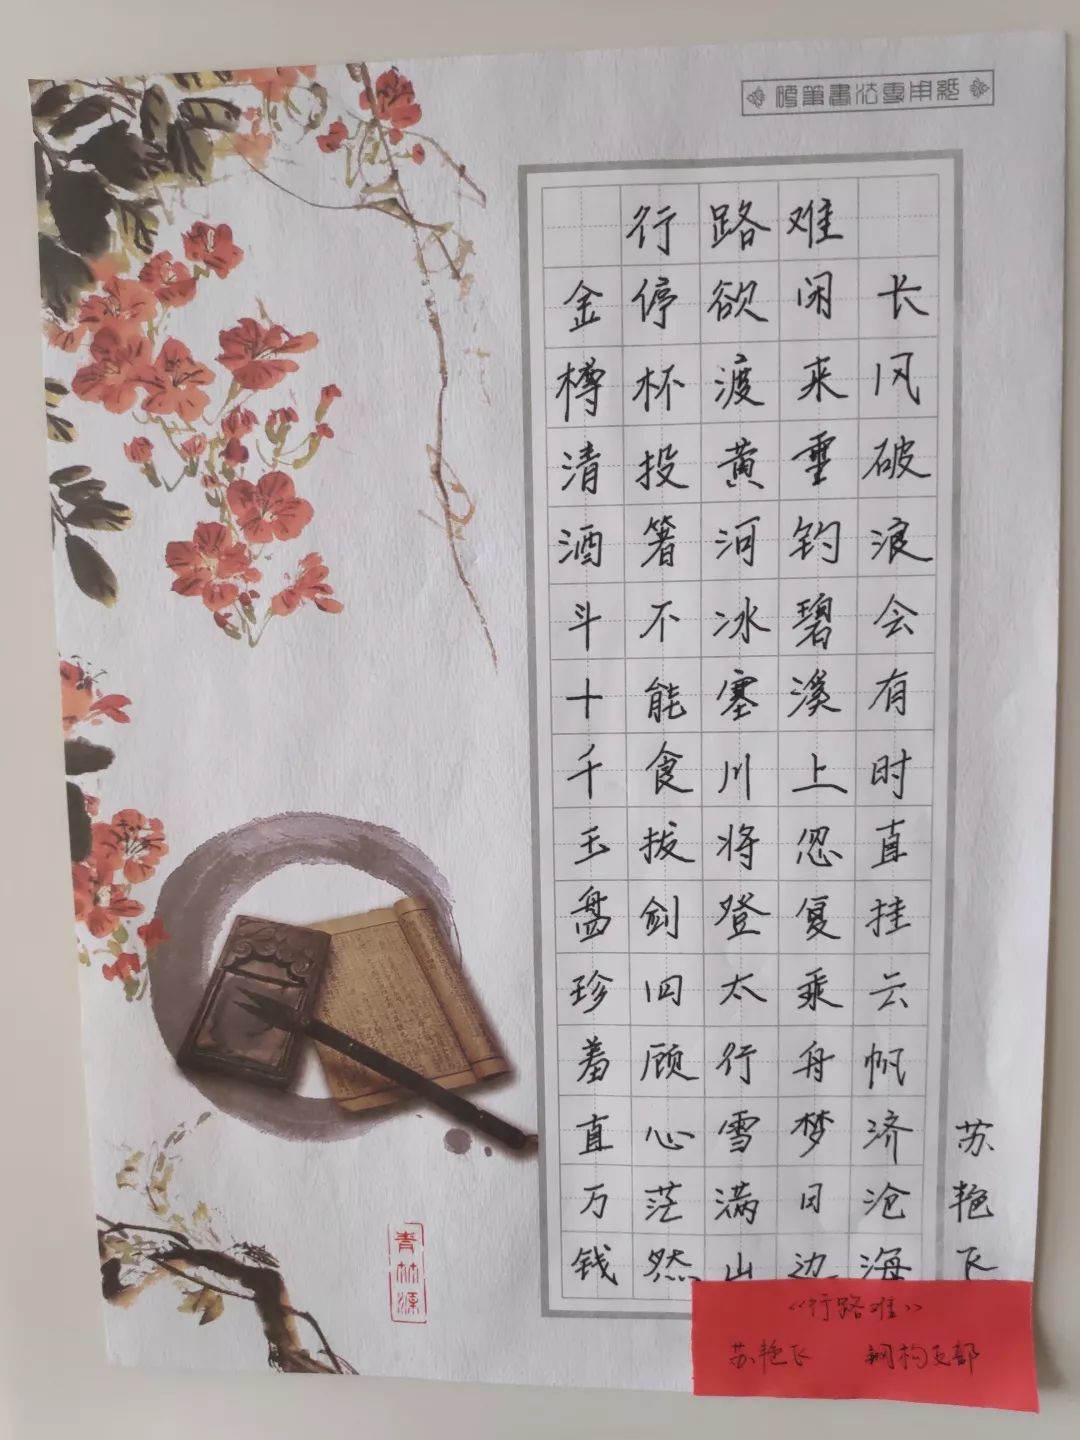 硬筆書法專用紙
行路难
金樽清酒斗十千玉盘珍羞直万钱
停杯投箸不能食拔剑四顾心茫然
欲渡黄河冰塞川将登太行雪满山
闲来垂钓碧溪上忽复乘舟梦日边
长风破浪会有时直挂云帆济沧海
苏艳飞
《行路难》
苏艳飞 钢构支部